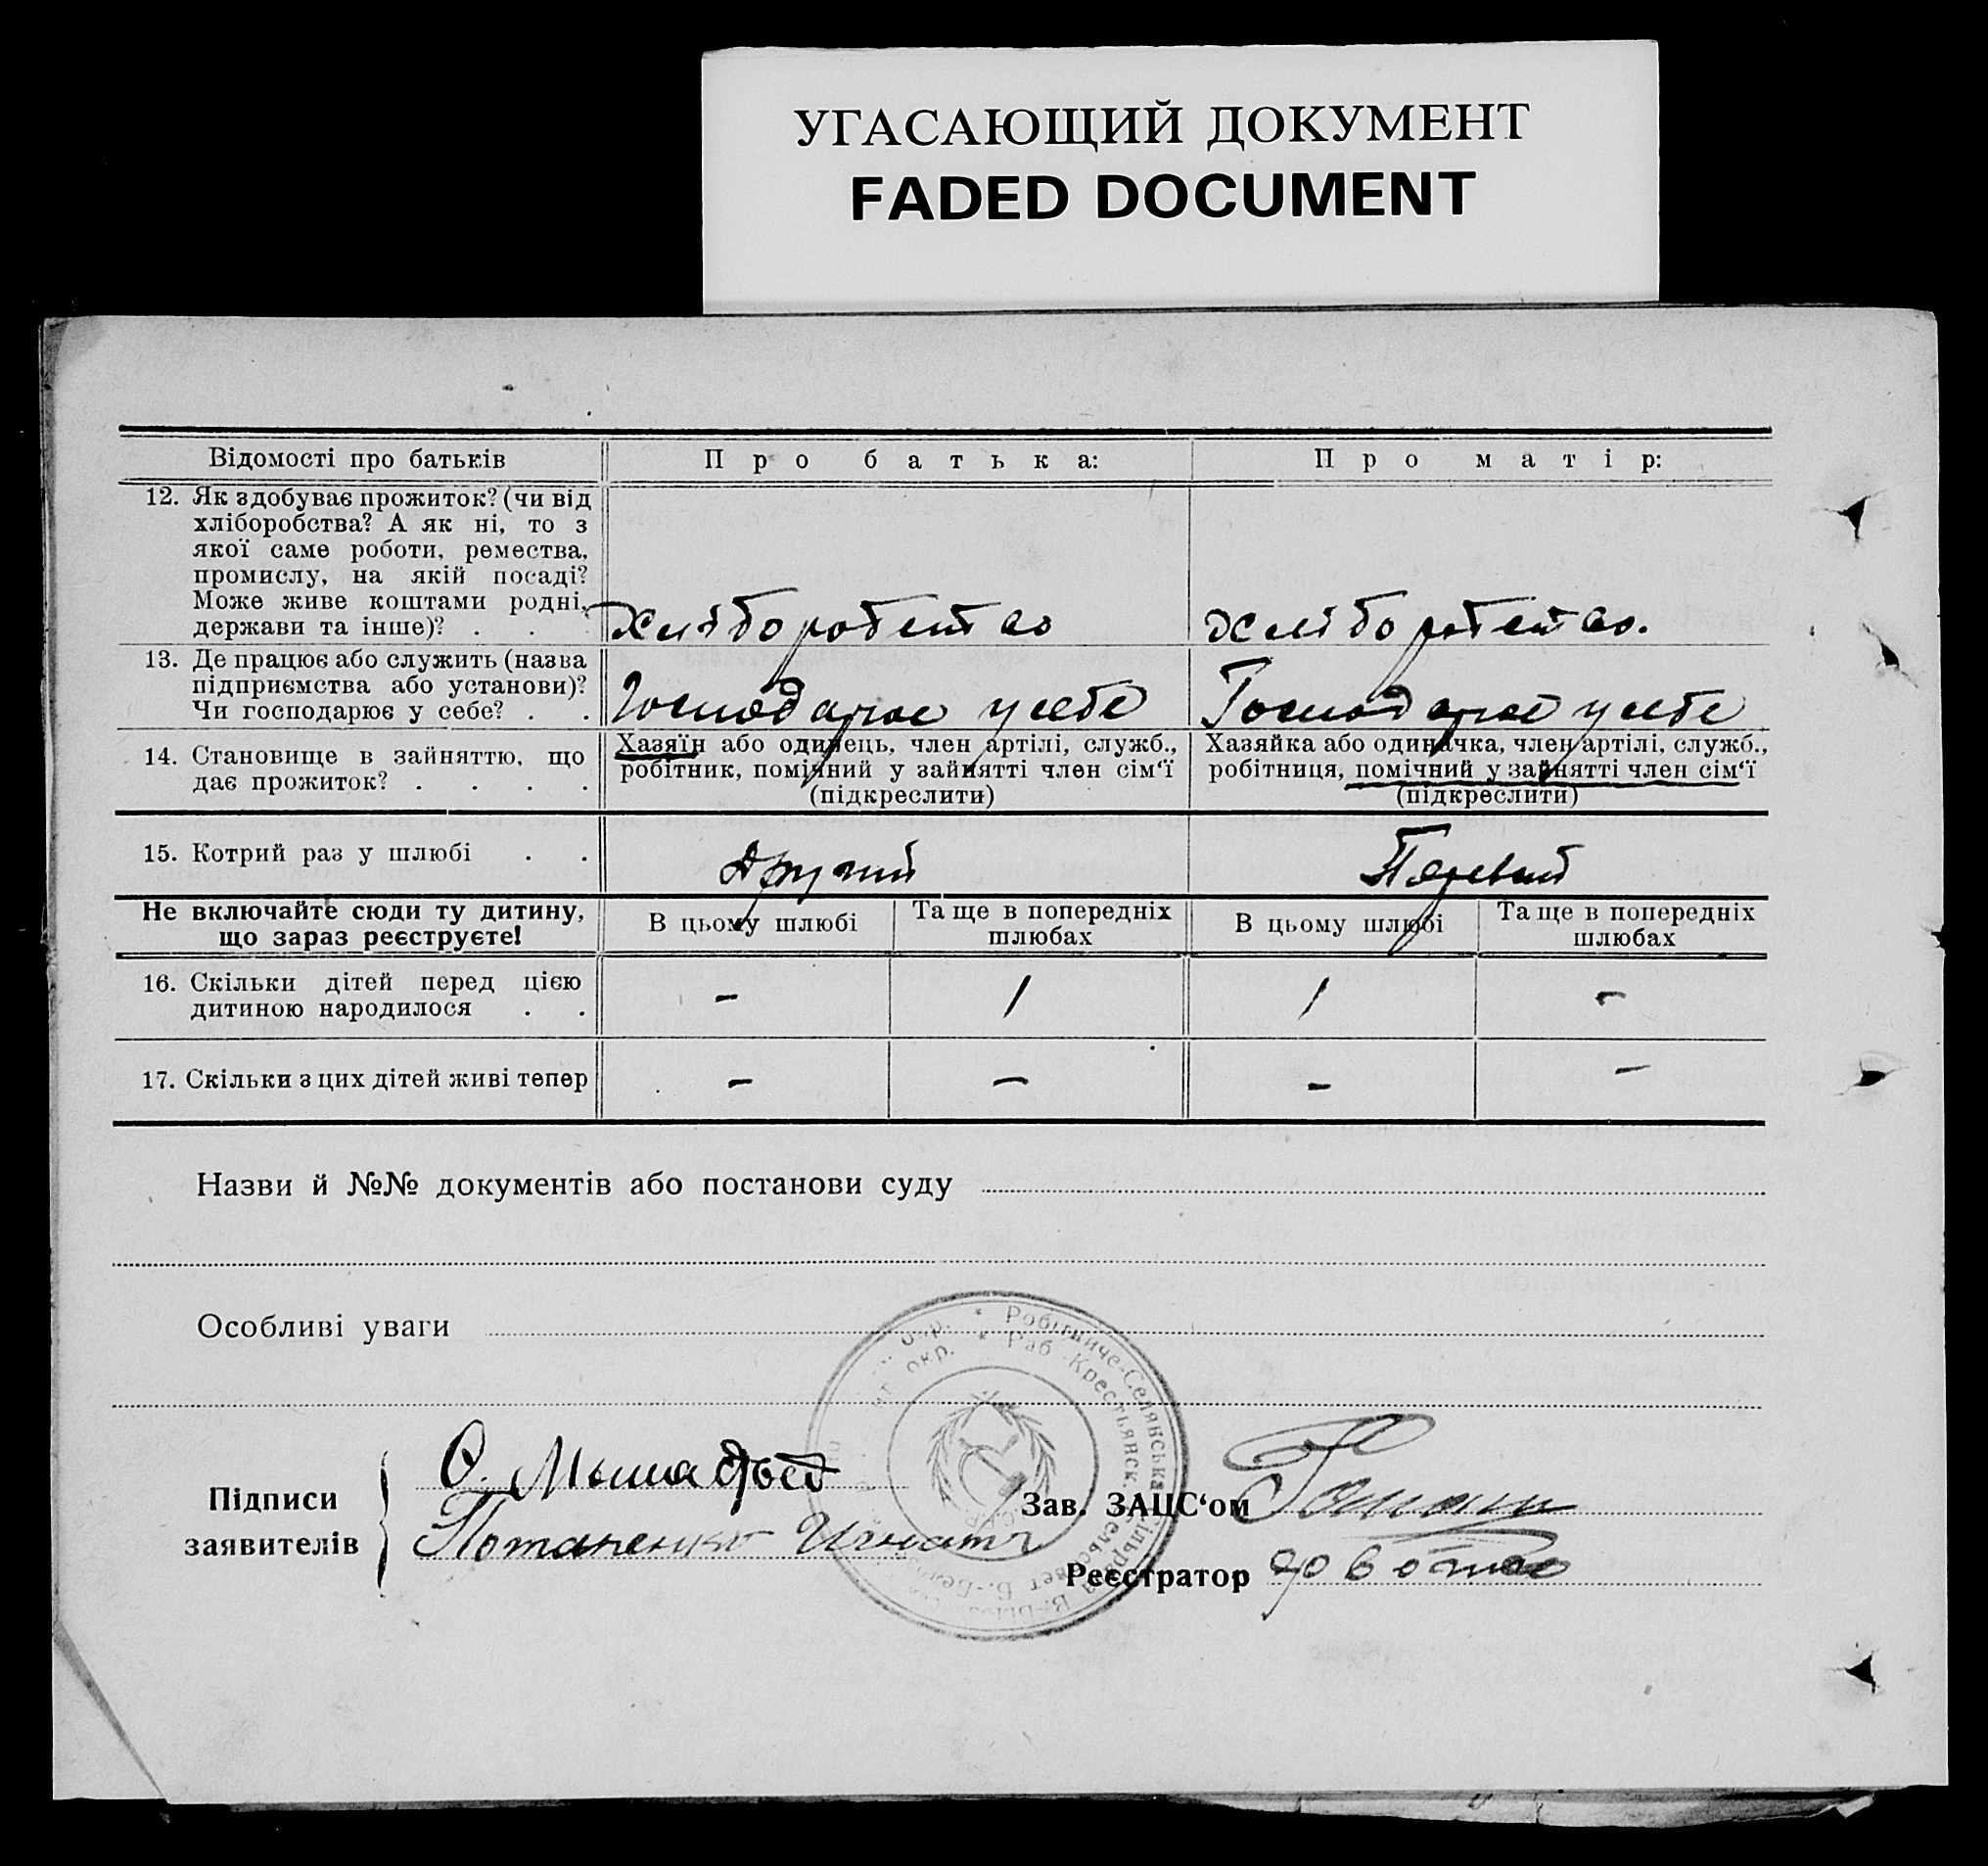 УГАСАЮЩИЙ ДОКУМЕНТ
FADED DOCUMENT
Відомості про батьків
Про батька:
Про матір:
12. Як здобуває прожиток? (чи від
хліборобства? А як ні, то з
якої саме роботи, ремества,
промислу, на якій посаді?
Може живе коштами родні,
держави та інше)? . . .
Хліборобство
Хліборобство.
13. Де працює або служить (назва
підприємства або установи)?
Чи господарює у себе? . .
Господарює у себе
Господарює у себе
14. Становище в зайняттю, що
дає прожиток? . . . .
Хазяїн або одинець, член артілі, служб.,
робітник, помічний у зайнятті член сім‘ї
(підкреслити)
Хазяйка або одиначка, член артілі, служб.,
робітниця, помічний у зайнятті член сім‘ї
(підкреслити)
15. Котрий раз у шлюбі . .
Другий
Первый
Не включайте сюди ту дитину,
що зараз реєструєте!
В цьому шлюбі
Та ще в попередніх
шлюбах
В цьому шлюбі
Та ще в попередніх
шлюбах
16. Скільки дітей перед цією
дитиною народилося . .
– 1 1 –
17. Скільки з цих дітей живі тепер
– – – –
Назви й №№ документів або постанови суду
Особливі уваги
окр. * Робітниче-Селянська Сільрада В.-
окр. * Раб.-Крестьянск. Сельсовет Б.-
Підписи
заявителів
О.
Потапенко Игнат
Зав. ЗАЦС‘ом
Реєстратор